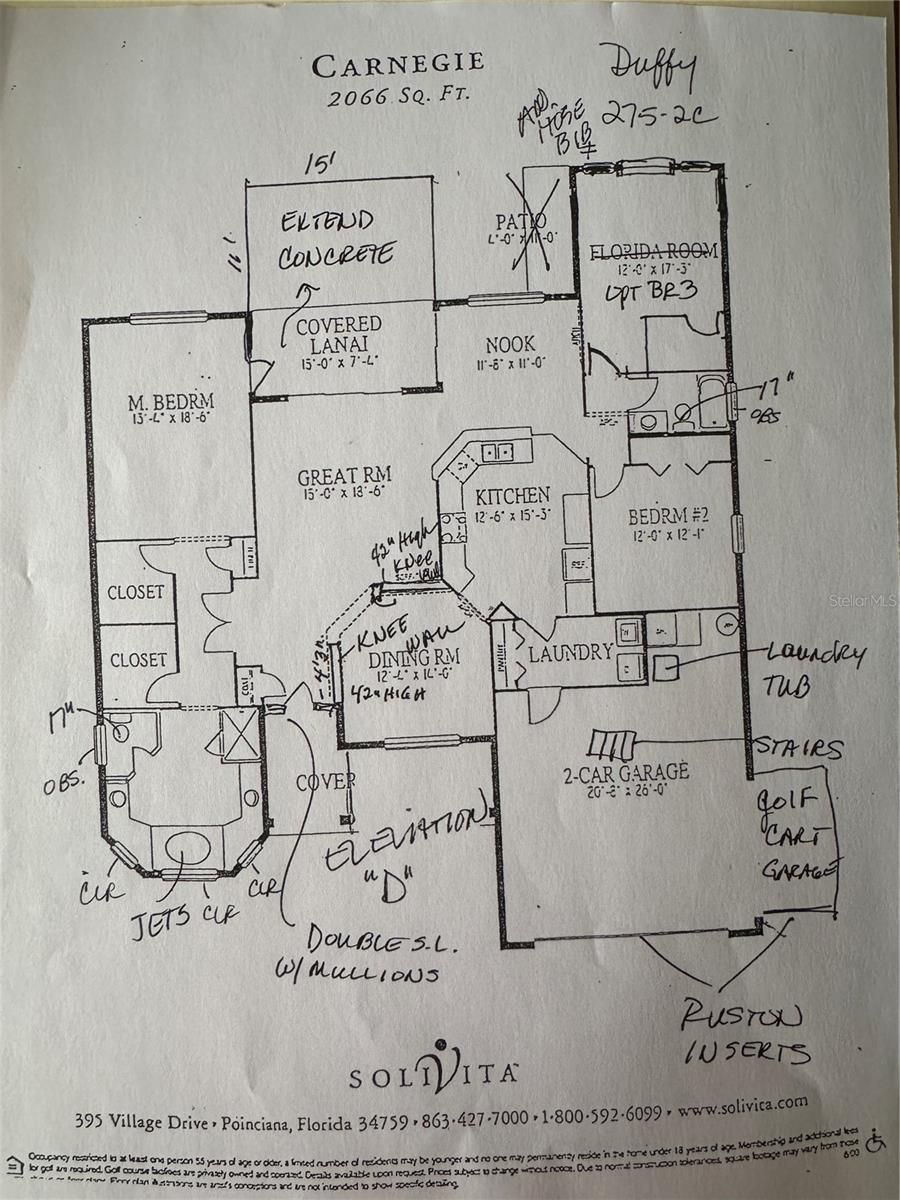 CARNEGIE
2066 SQ. FT.
Duffy
275-2C
ADD
HOSE
BIB
15'
11'
EXTEND
CONCRETE
PATIO
FLORIDA ROOM
12'-0" x 17'-3"
OPT BR3
COVERED
LANAI
15'-0" x 7'-4"
NOOK
11'-8" x 11'-0"
M. BEDRM
13'-4" x 18'-6"
17"
OBS
GREAT RM
15'-0" x 18'-6"
KITCHEN
12'-6" x 15'-3"
BEDRM #2
12'-0" x 12'-1"
REF.
42" High
KNEE
WALL
CLOSET
CLOSET
KNEE
WALL
DINING RM
12'-4" x 14'-0"
42" HIGH
4'3"
COAT
PANTRY
LAUNDRY
LAUNDRY
TUB
STAIRS
17"
OBS.
COVER
2-CAR GARAGE
20'-8" x 26'-0"
GOLF
CART
GARAGE
ELEVATION
"D"
CLR
JETS
CLR
CLR
DOUBLE S.L.
W/ MULLIONS
RUSTON
INSERTS
SOLIVITA™
395 Village Drive • Poinciana, Florida 34759 • 863·427·7000 • 1·800·592·6099 • www.solivica.com
Occupancy restricted to at least one person 55 years of age or older, a limited number of residents may be younger and no one may permanently reside in the home under 18 years of age. Membership and additional fees
for golf are required. Golf course facilities are privately owned and operated. Details available upon request. Prices subject to change without notice. Due to normal construction tolerances, square footage may vary from those
Floor plan illustrations are artist's conceptions and are not intended to show specific detailing.
6/00
Stellar MLS